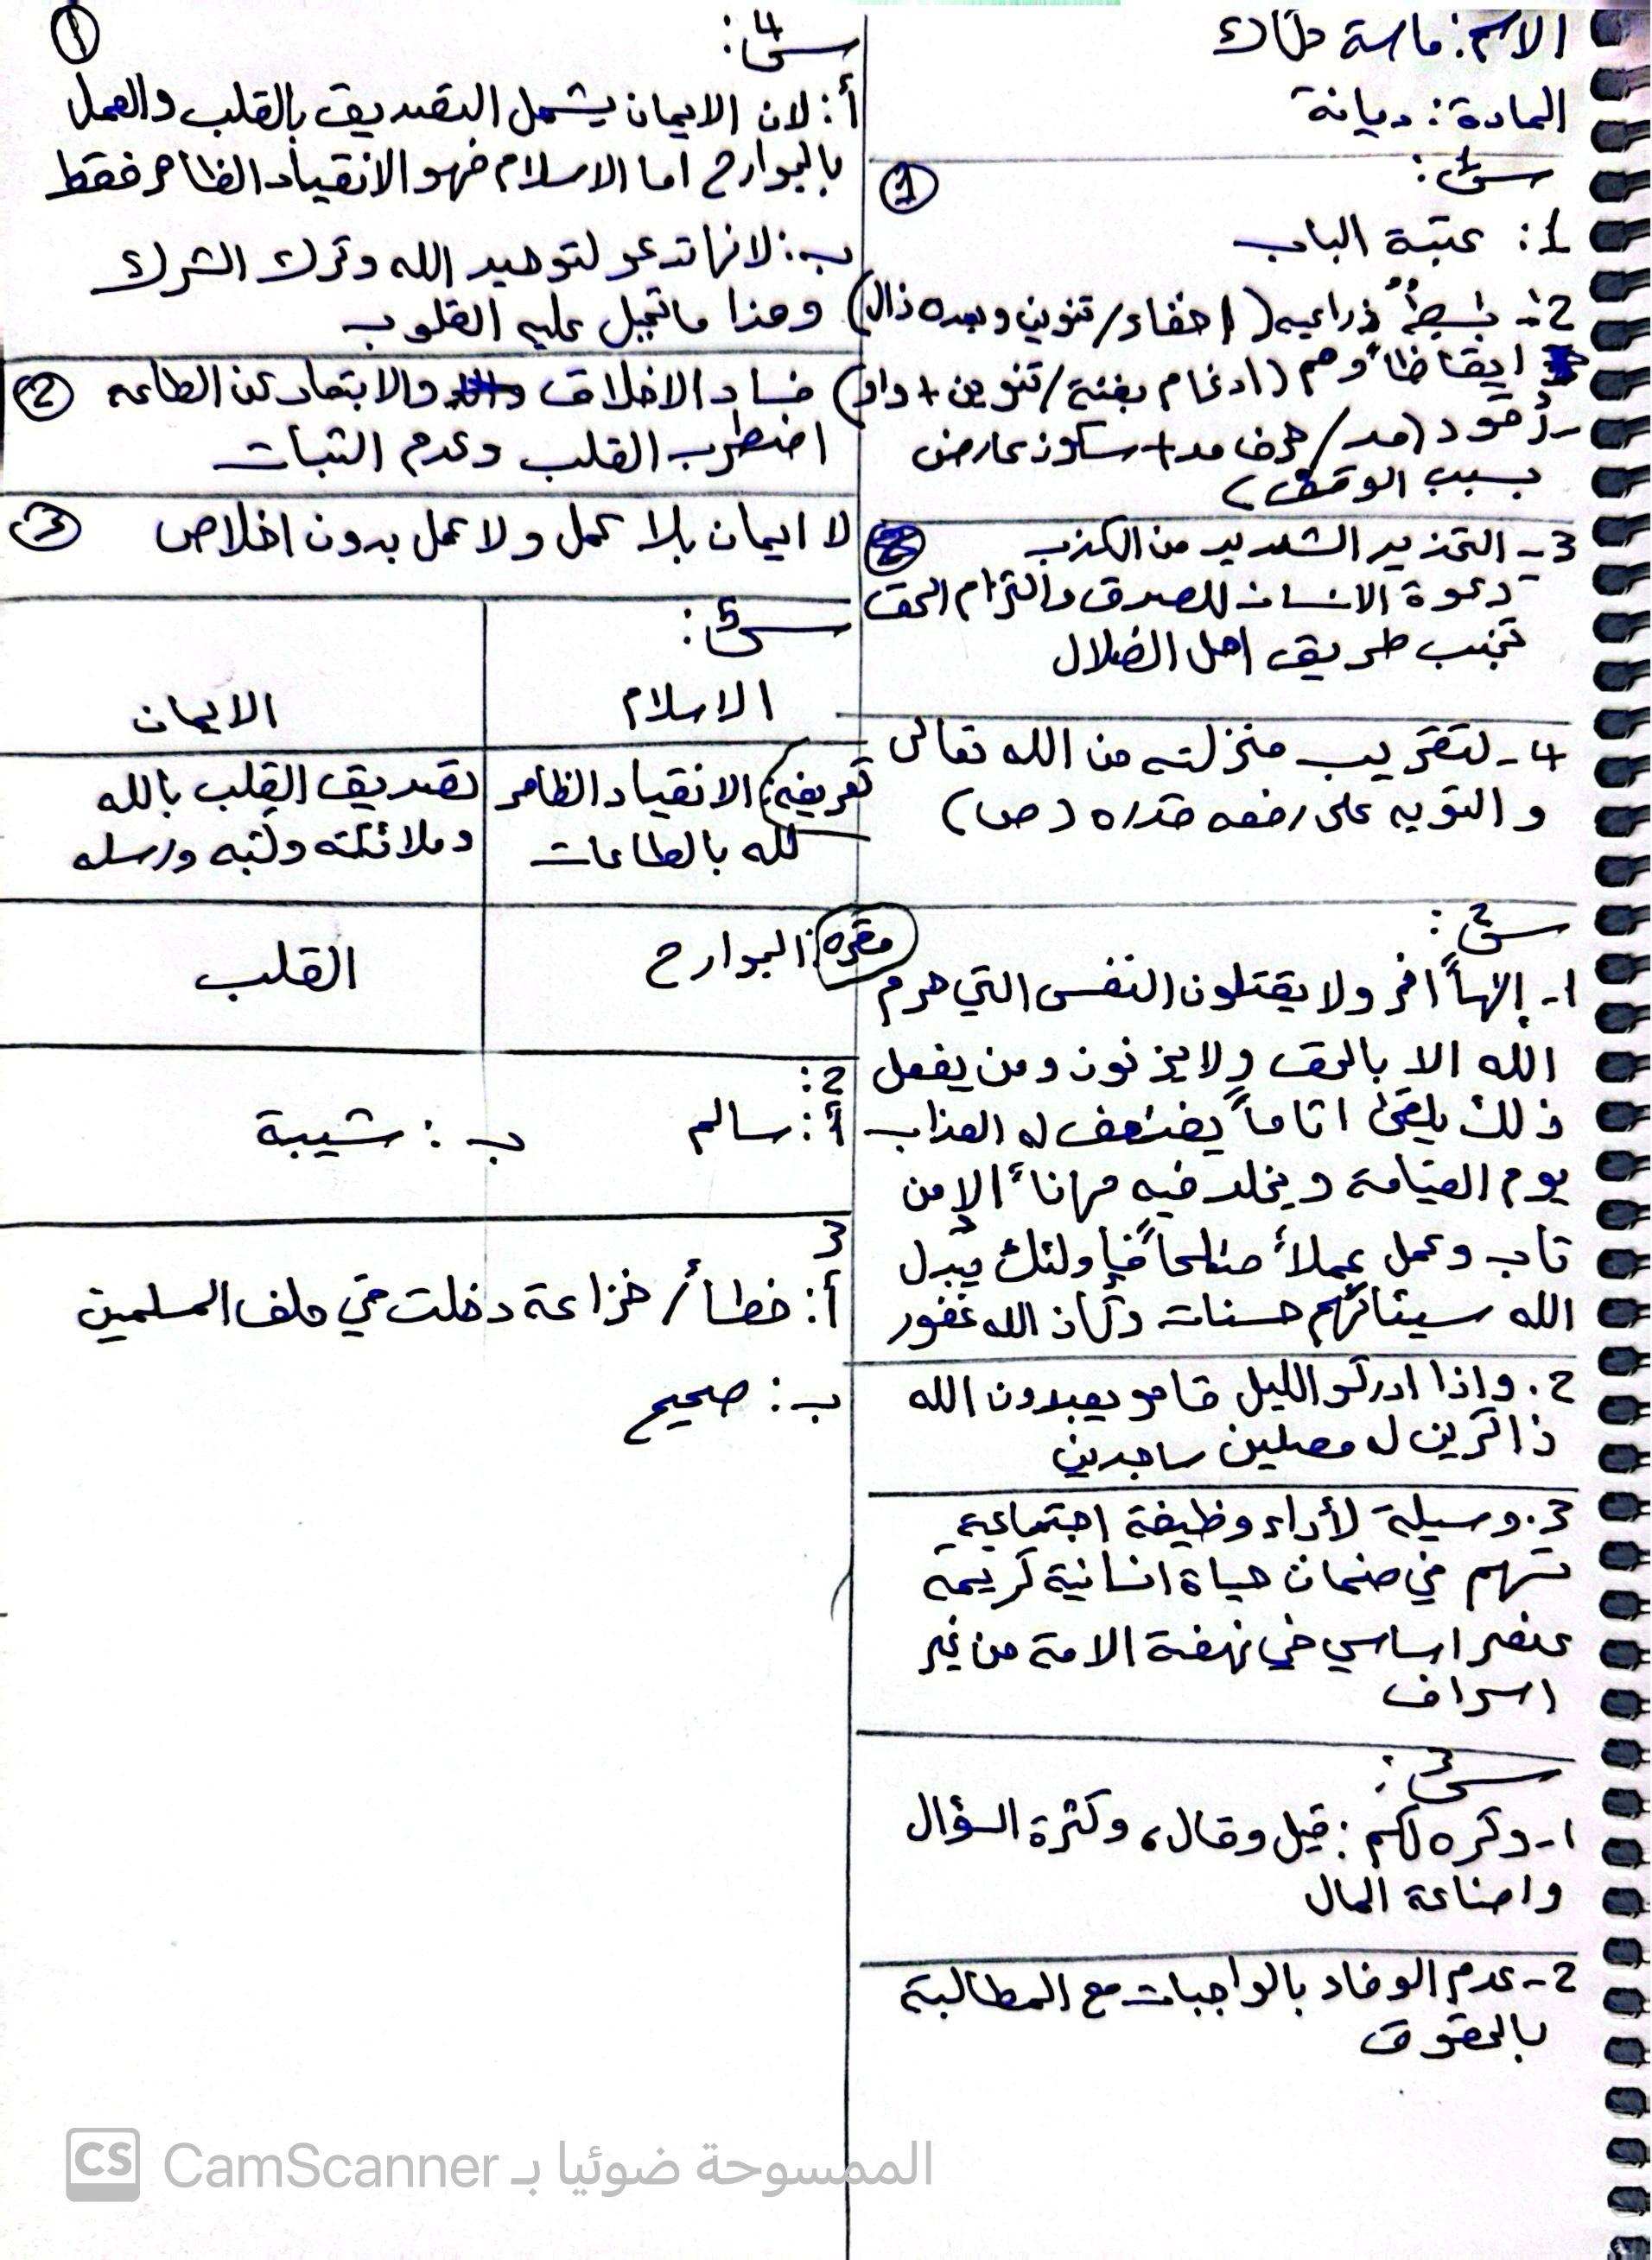 الاسم: ماسة
المادة: ديانة
س1:
①
1: عتبة الباب
2- بٰسِطٌ ذراعيه (اخفاء/تنوين وبعده ذال)
ايقاظاً وهم (ادغام بغنة/تنوين + واو)
- رُقود (مد/حرف مد + سكون عارض
بسبب الوقف)
3- التحذير الشديد من الكذب
- دعوة الانسان للصدق والتزام الحق
تجنب طريق اهل الضلال
4- لتقريب منزلته من الله تعالى
و التنويه على رفعه قدره (ص)
س2:
1- إلهاً اخر ولا يقتلون النفس التي حرم
الله الا بالحق ولا يزنون ومن يفعل
ذلك يلقى اثاماً يضٰعف له العذاب
يوم القيامة ويخلد فيه مهاناً الا من
تاب وعمل عملاً صٰلحاً فأولئك يُبدل
الله سيئاتهم حسنات وكان الله غفور
2. واذا ادركو الليل قامو يعبدون الله
ذاكرين له مصلين ساجدين
3. وسيلة لأداء وظيفة اجتماعية
تسهم في ضمان حياة انسانية كريمة
عنصر اساسي في نهضة الامة من غير
اسراف
س3:
1- وكره لكم: قيل وقال، وكثرة السؤال
واضاعة المال
2- عدم الوفاء بالواجبات مع المطالبة
بالحقوق
س4:
①
أ: لان الايمان يشمل التصديق بالقلب والعمل
بالجوارح اما الاسلام فهو الانقياد الظاهر فقط
ب: لانها تدعو لتوحيد الله وترك الشرك
وهذا ما تميل عليه القلوب
② فساد الاخلاق والابتعاد عن الطاعه
اضطرب القلب وعدم الثبات
③ لا ايمان بلا عمل ولا عمل بدون اخلاص
س5:
الاسلام الايمان
تعريفه: الانقياد الظاهر تصديق القلب بالله
لله بالطاعات وملائكته وكتبه ورسله
مقره: الجوارح القلب
2:
أ: سالم ب: شيبة
3
أ: خطأ/ خزاعة دخلت في حلف المسلمين
ب: صحيح
CS CamScanner الممسوحة ضوئيا بـ